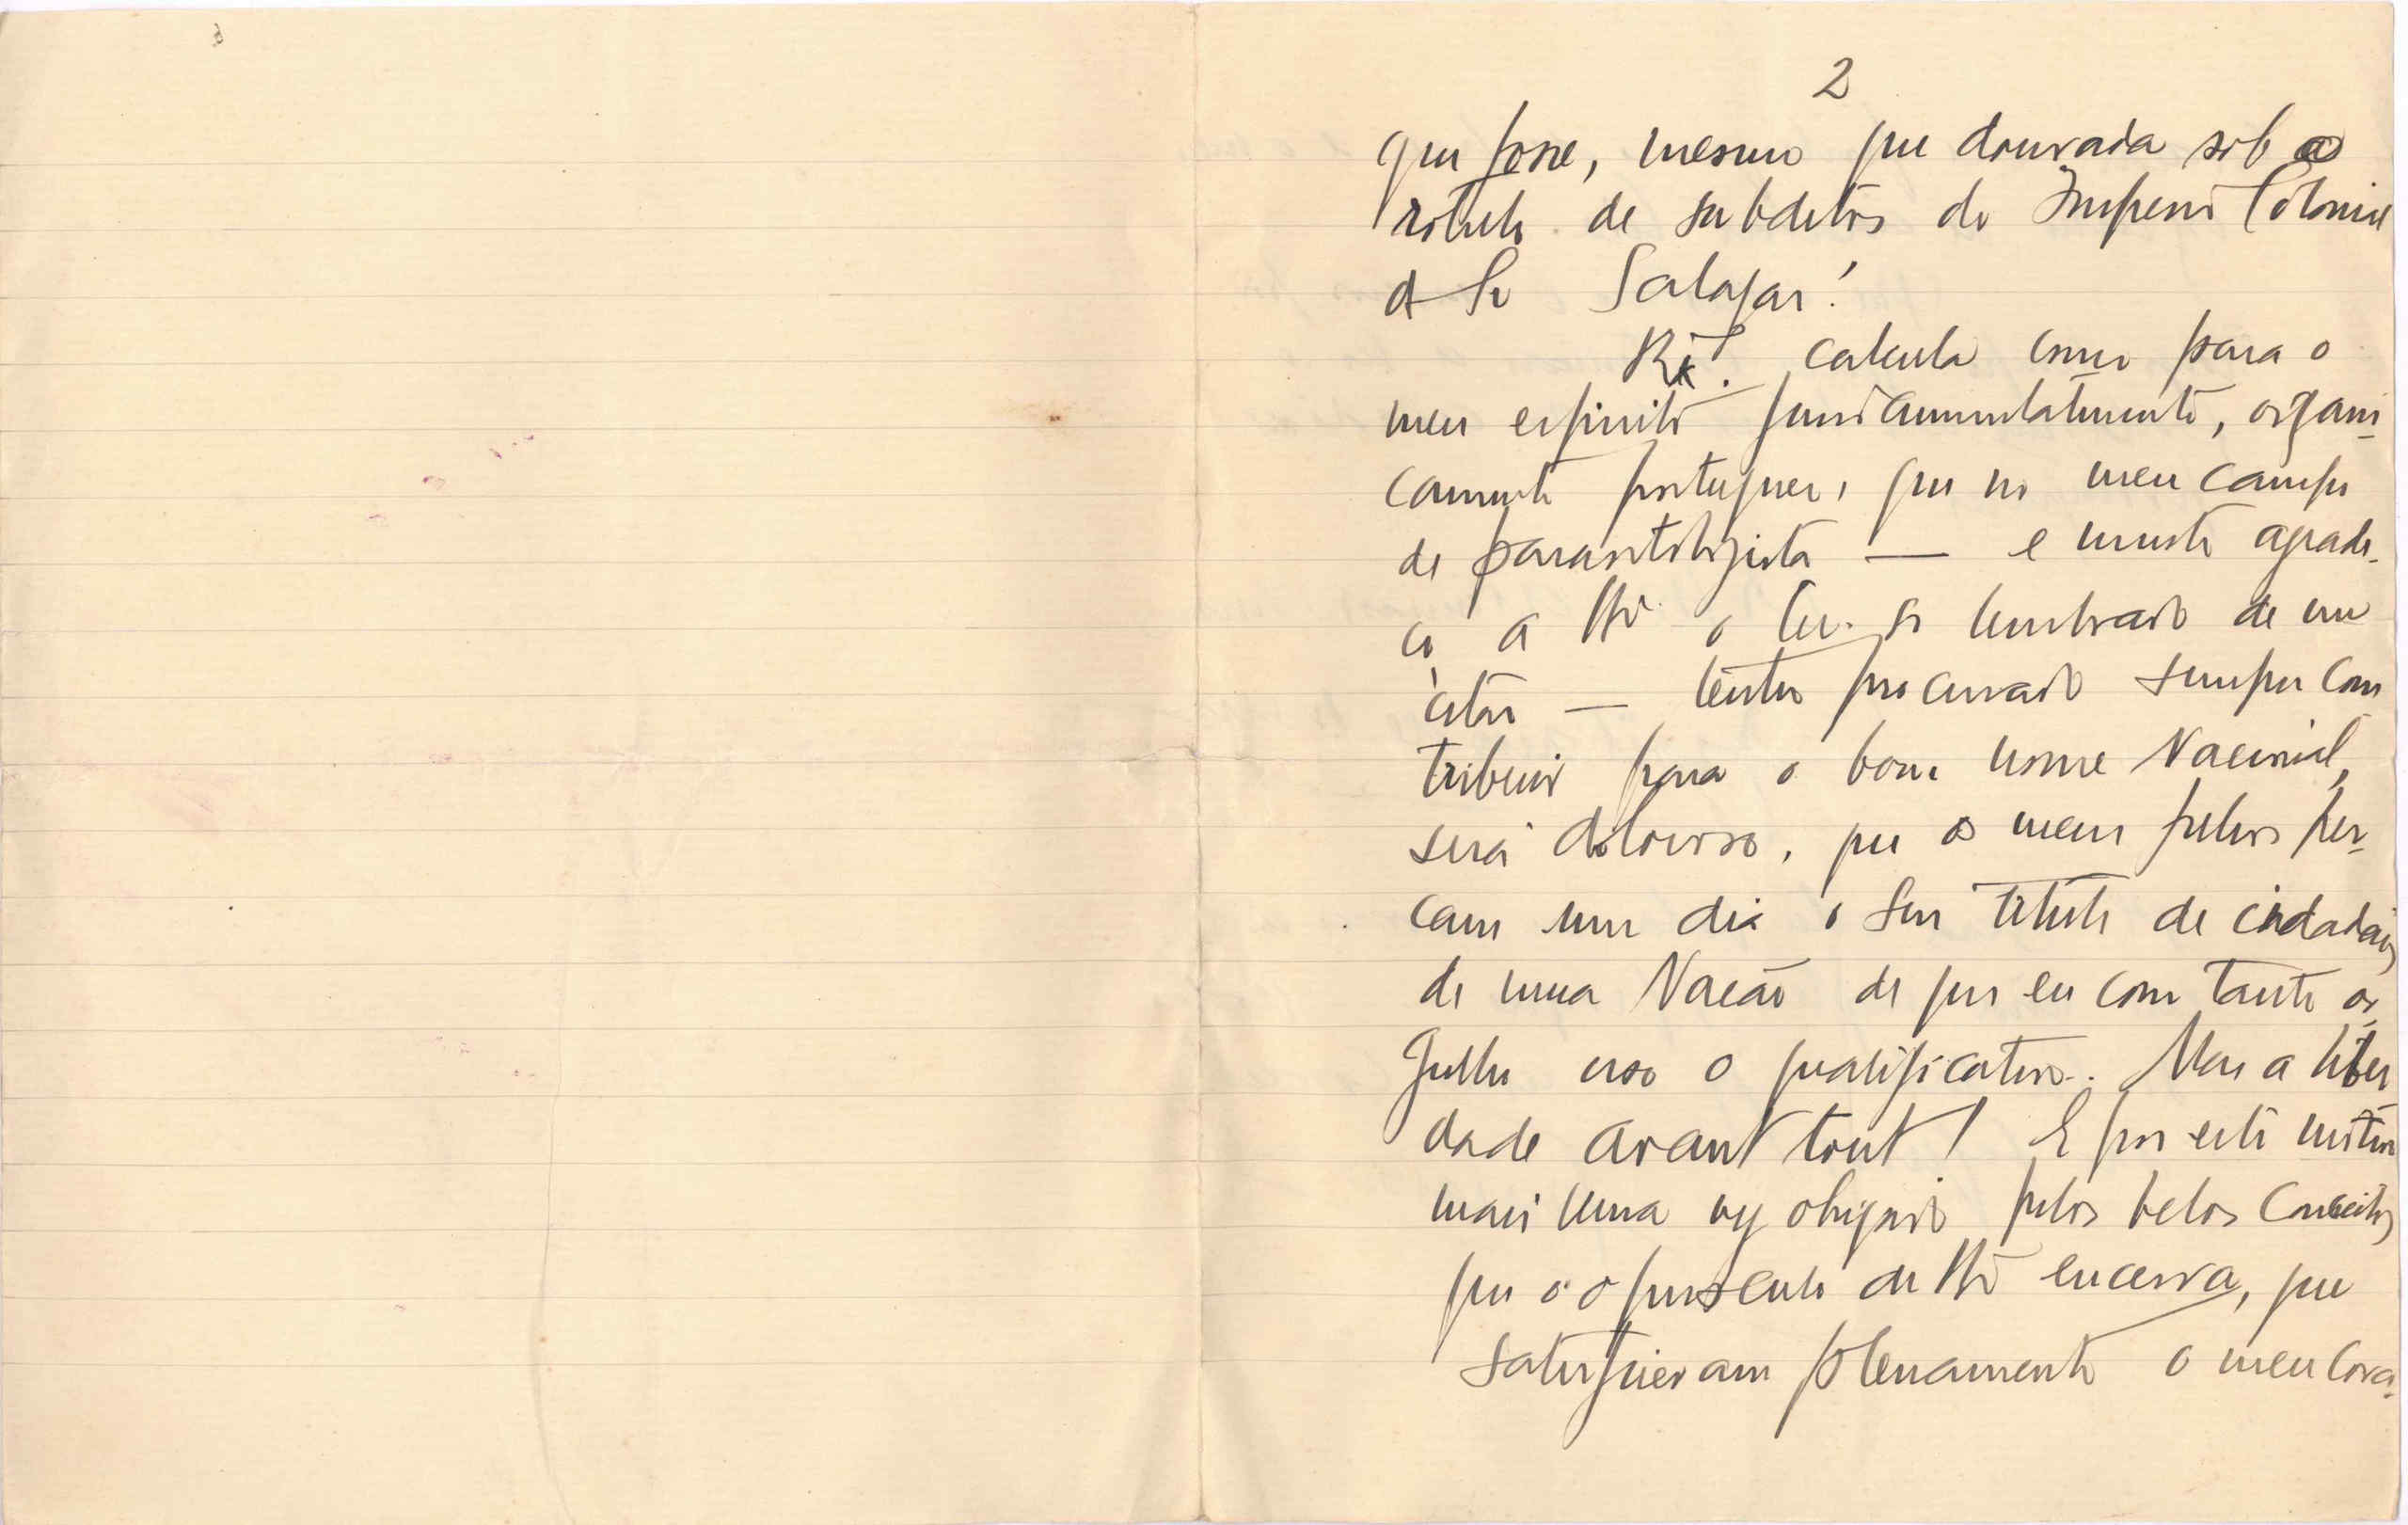 2
que fosse, mesmo que dourada sob o
rotulo de subditos do Imperio Colonial
do Sr Salazar!
calcula como para o
meu espirito fundamentalmente, organi-
camente portuguez, que no meu campo
de parasitologista — e muito agrade-
ço a VExª o ter-se lembrado de me
citar — tenho procurado sempre con
tribuir para o bom nome Nacional,
será doloroso, que os meus filhos per-
cam um dia o seu titulo de cidadãos
de uma Nação de que eu com tanto or-
gulho uso o qualificativo. Mas a liber
dade avant tout! E por este motivo
mais uma vez obrigado pelos belos conceitos
que o opusculo de VExª encerra, que
satisfizeram plenamente o meu cora-